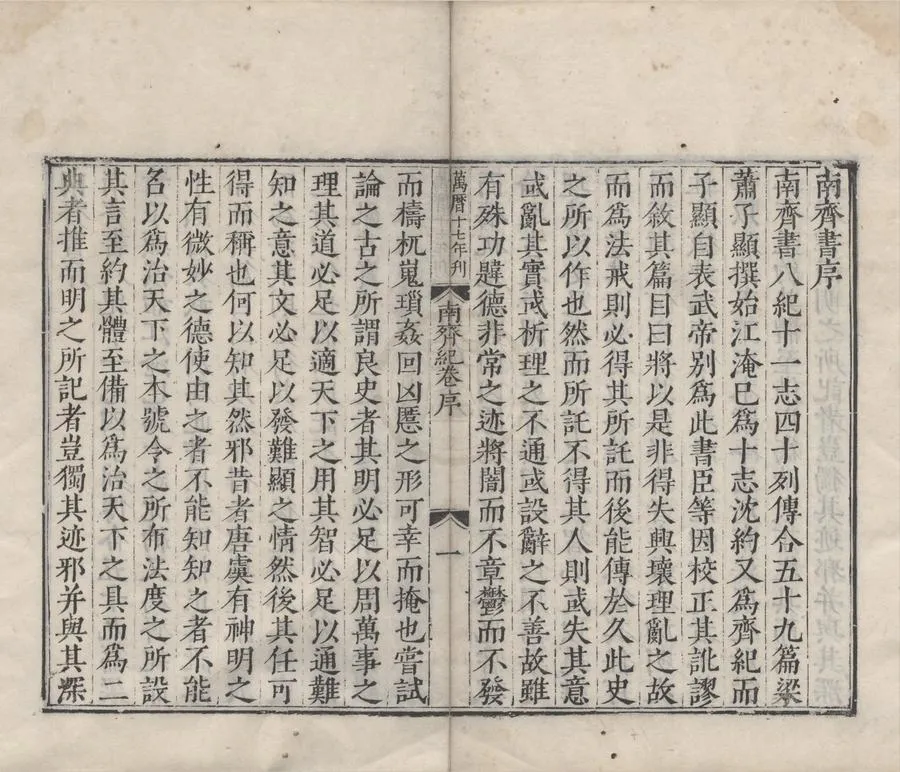 南齊書序
南齊書八紀十一志四十列傳合五十九篇梁
蕭子顯撰始江淹已爲十志沈約又爲齊紀而
子顯自表武帝别爲此書臣等因校正其訛謬
而敘其篇目曰將以是非得失興壞理亂之故
而爲法戒則必得其所託而後能傳於久此史
之所以作也然而所託不得其人則或失其意
或亂其實或析理之不通或設辭之不善故雖
有殊功韙德非常之迹將闇而不章鬱而不發
萬曆十七年刋
南齊紀卷序
一
而檮杌嵬瑣姦回凶慝之形可幸而掩也嘗試
論之古之所謂良史者其明必足以周萬事之
理其道必足以適天下之用其智必足以通難
知之意其文必足以發難顯之情然後其任可
得而稱也何以知其然邪昔者唐虞有神明之
性有微妙之德使由之者不能知知之者不能
名以爲治天下之本號令之所布法度之所設
其言至約其體至備以爲治天下之具而爲二
典者推而明之所記者豈獨其迹邪并與其深